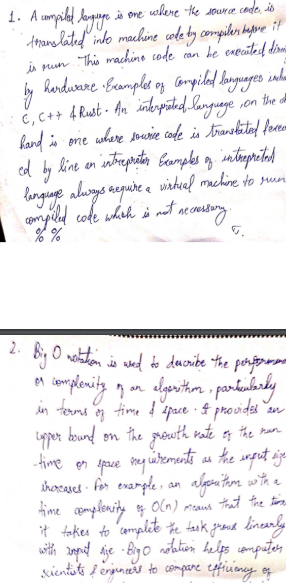 1. A compiled language is one where the source code, is
translated into machine code by compiler before it
is run. This machine code can be executed
by hardware. Examples of compiled languages
C, C++ & Rust. An interpreted language, on the
hand is one where source code is translated
ed by line an intrepreter Examples of intrepreted
language always require a virtual machine to run
compiled code which is not necessary.
2. Big O notation is used to describe the
or complexity of an algorithm, particularly
in terms of time & space. It provides an
upper bound on the growth rate of the run
time or space requirements as the input size
increases. For example, an algorithm with a
time complexity of O(n) means that the time
it takes to complete the task grows linearly
with input size. Big O notation helps computer
scientists & engineers to compare efficiency of